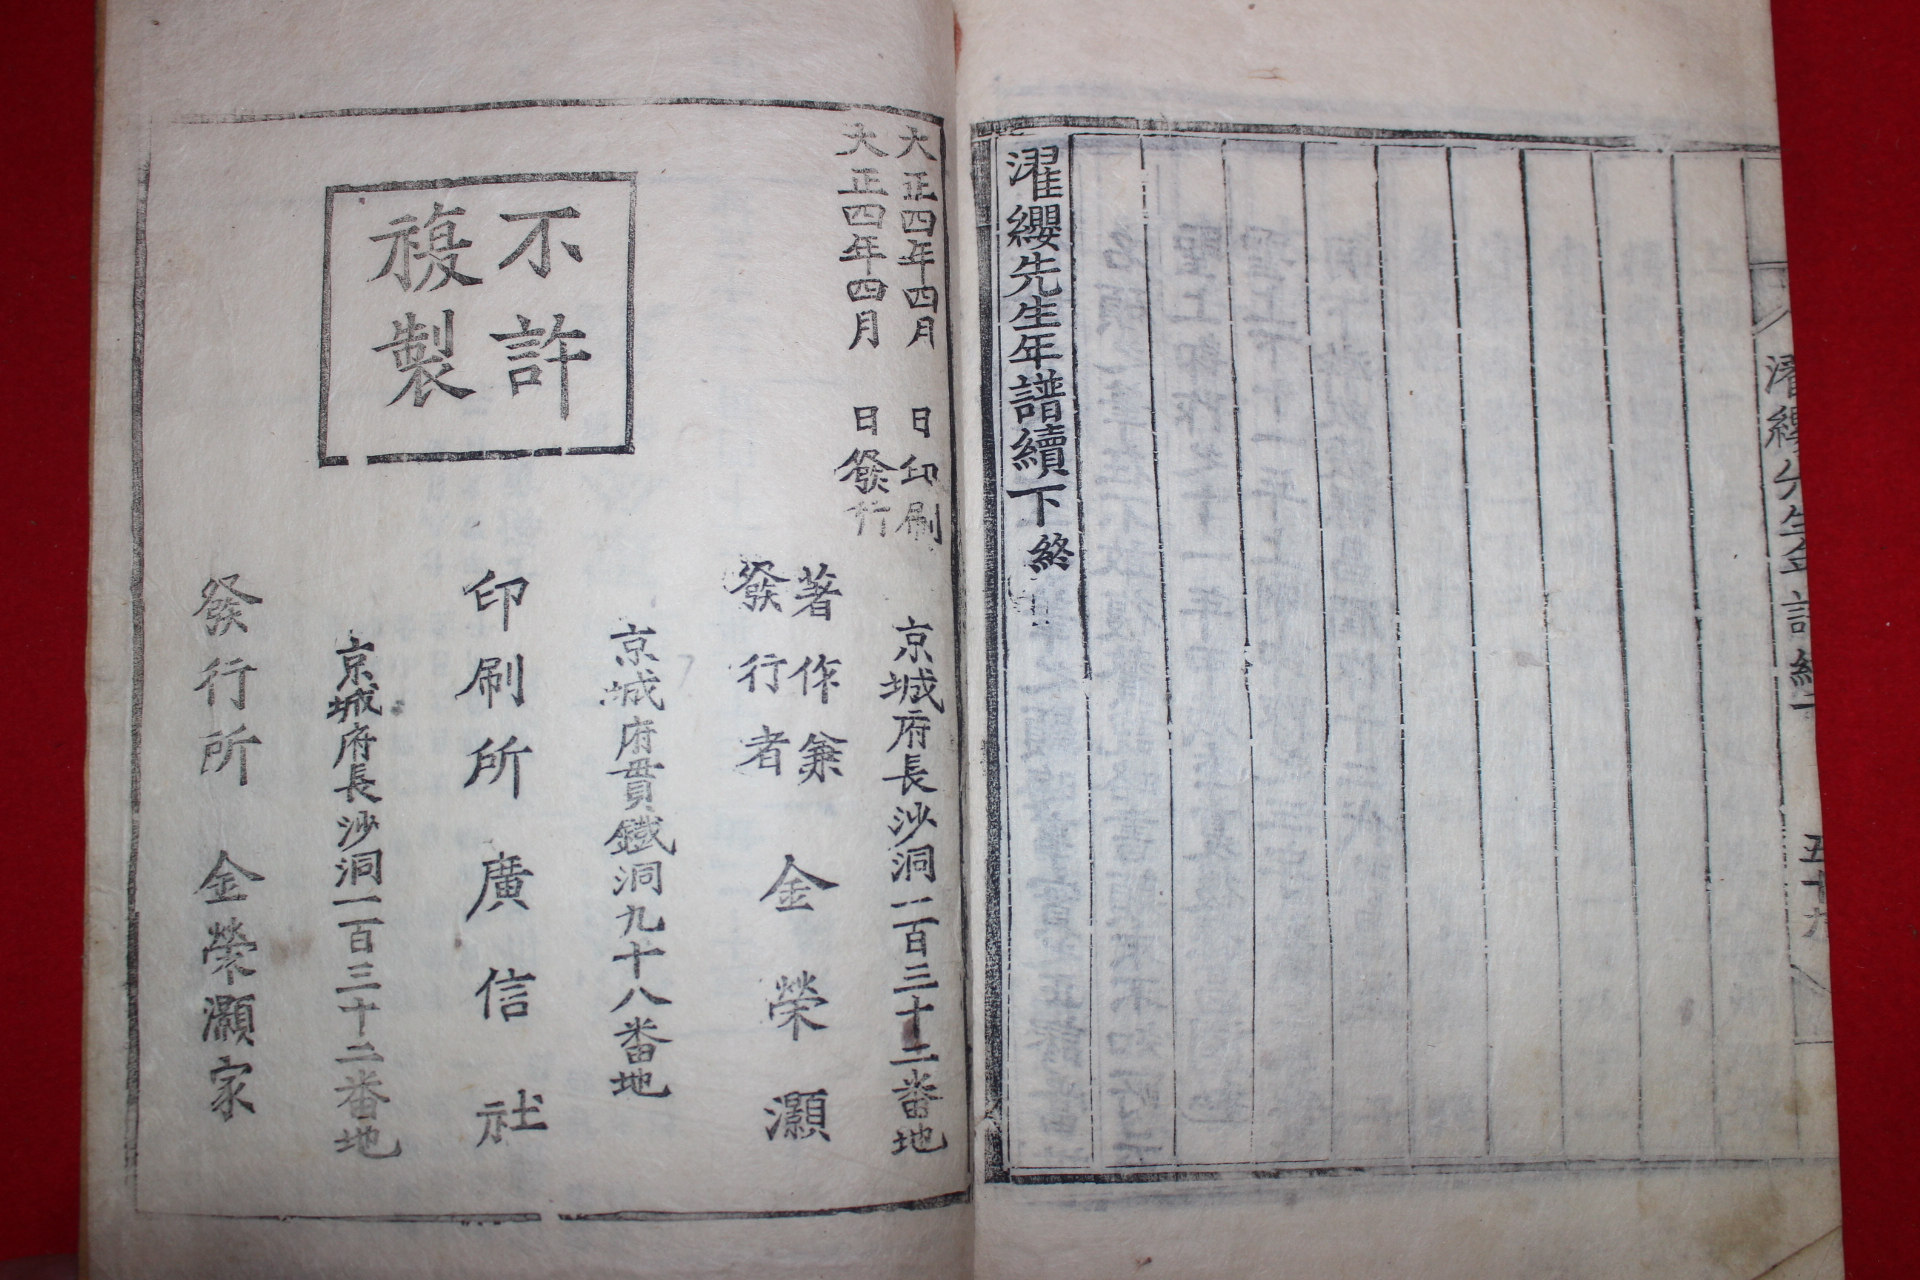 濯纓先生年譜續下 五十九
濯纓先生年譜續下終
大正四年四月 日印刷
大正四年四月 日發行
京城府長沙洞一百三十二番地
著作兼
發行者
金榮灝
京城府貫鐵洞九十八番地
印刷所 廣信社
京城府長沙洞一百三十二番地
發行所 金榮灝家
不許
複製